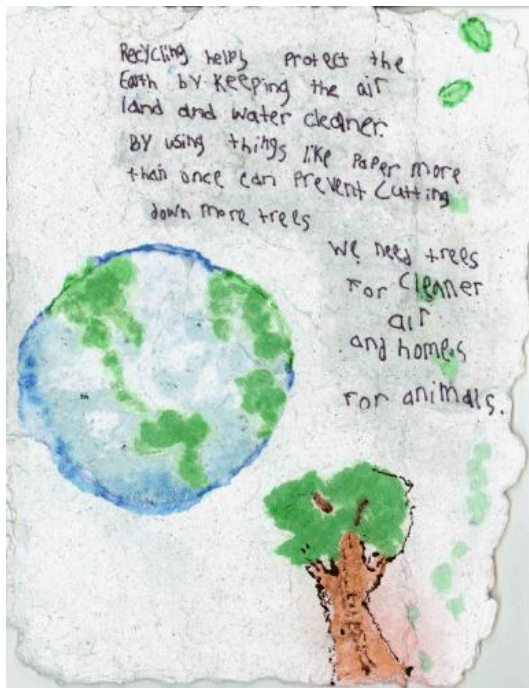 Recycling helps protect the
Earth by keeping the air
land and water cleaner.
By using things like paper more
than once can prevent cutting
down more trees
we need trees
for cleaner
air
and homes
for animals.